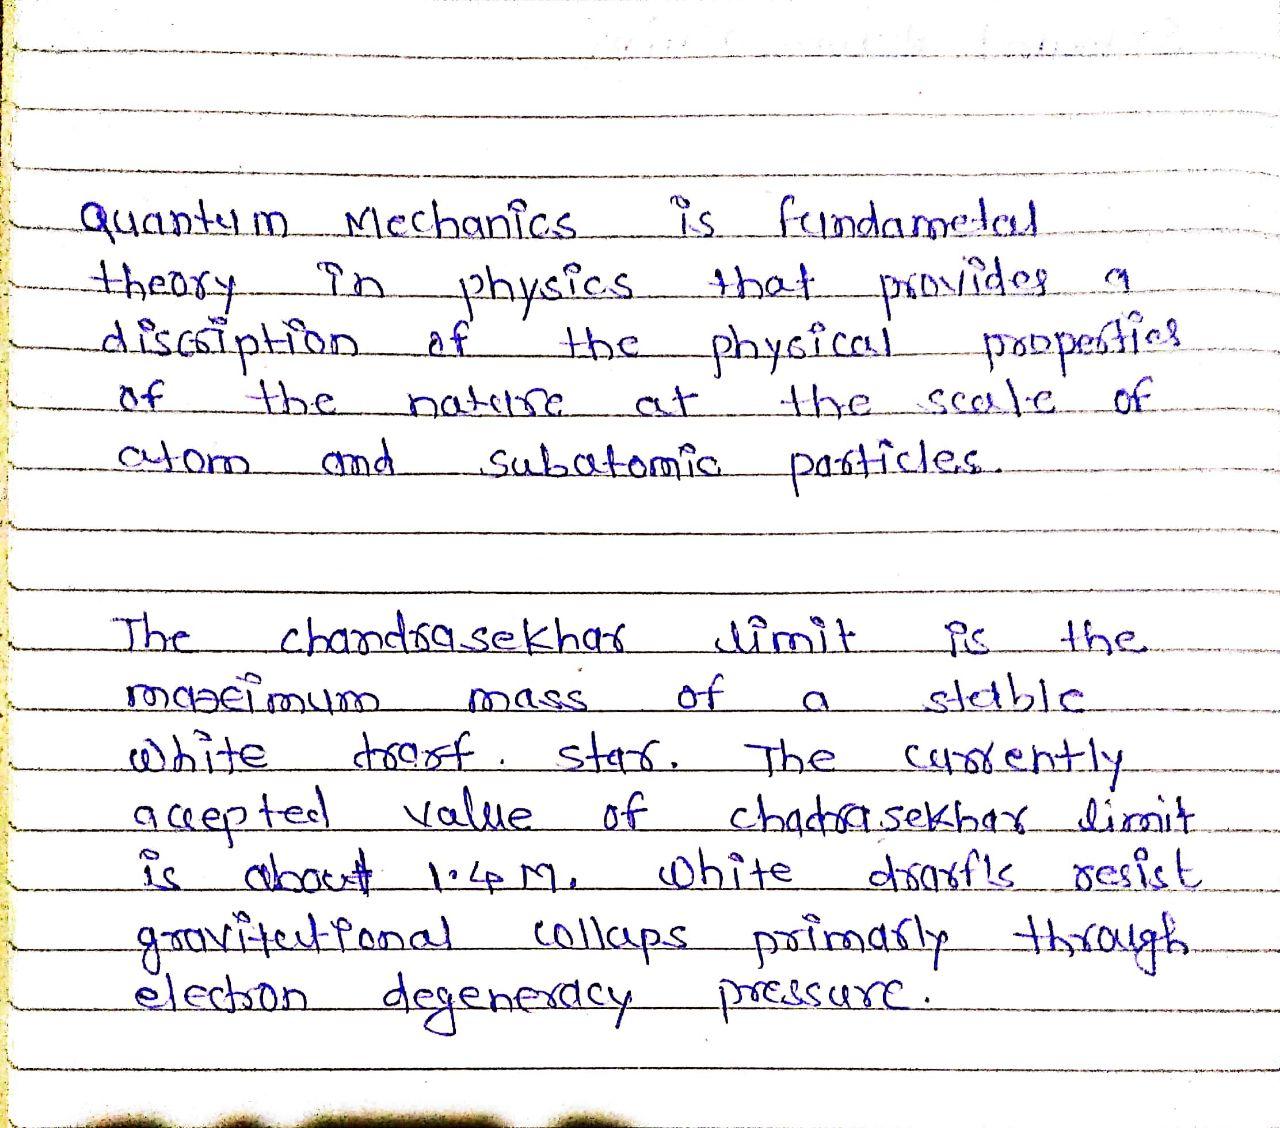 Quantum Mechanics is fundametal
theory in physics that provides a
discription of the physical properties
of the nature at the scale of
atom and subatomic particles.
The chandrasekhar limit is the
maximum mass of a stable
white drarf. star. The currently
accepted value of chadrasekhar limit
is about 1.4 M. White drarfs resist
gravitational collaps primarly through
electron degeneracy pressure.